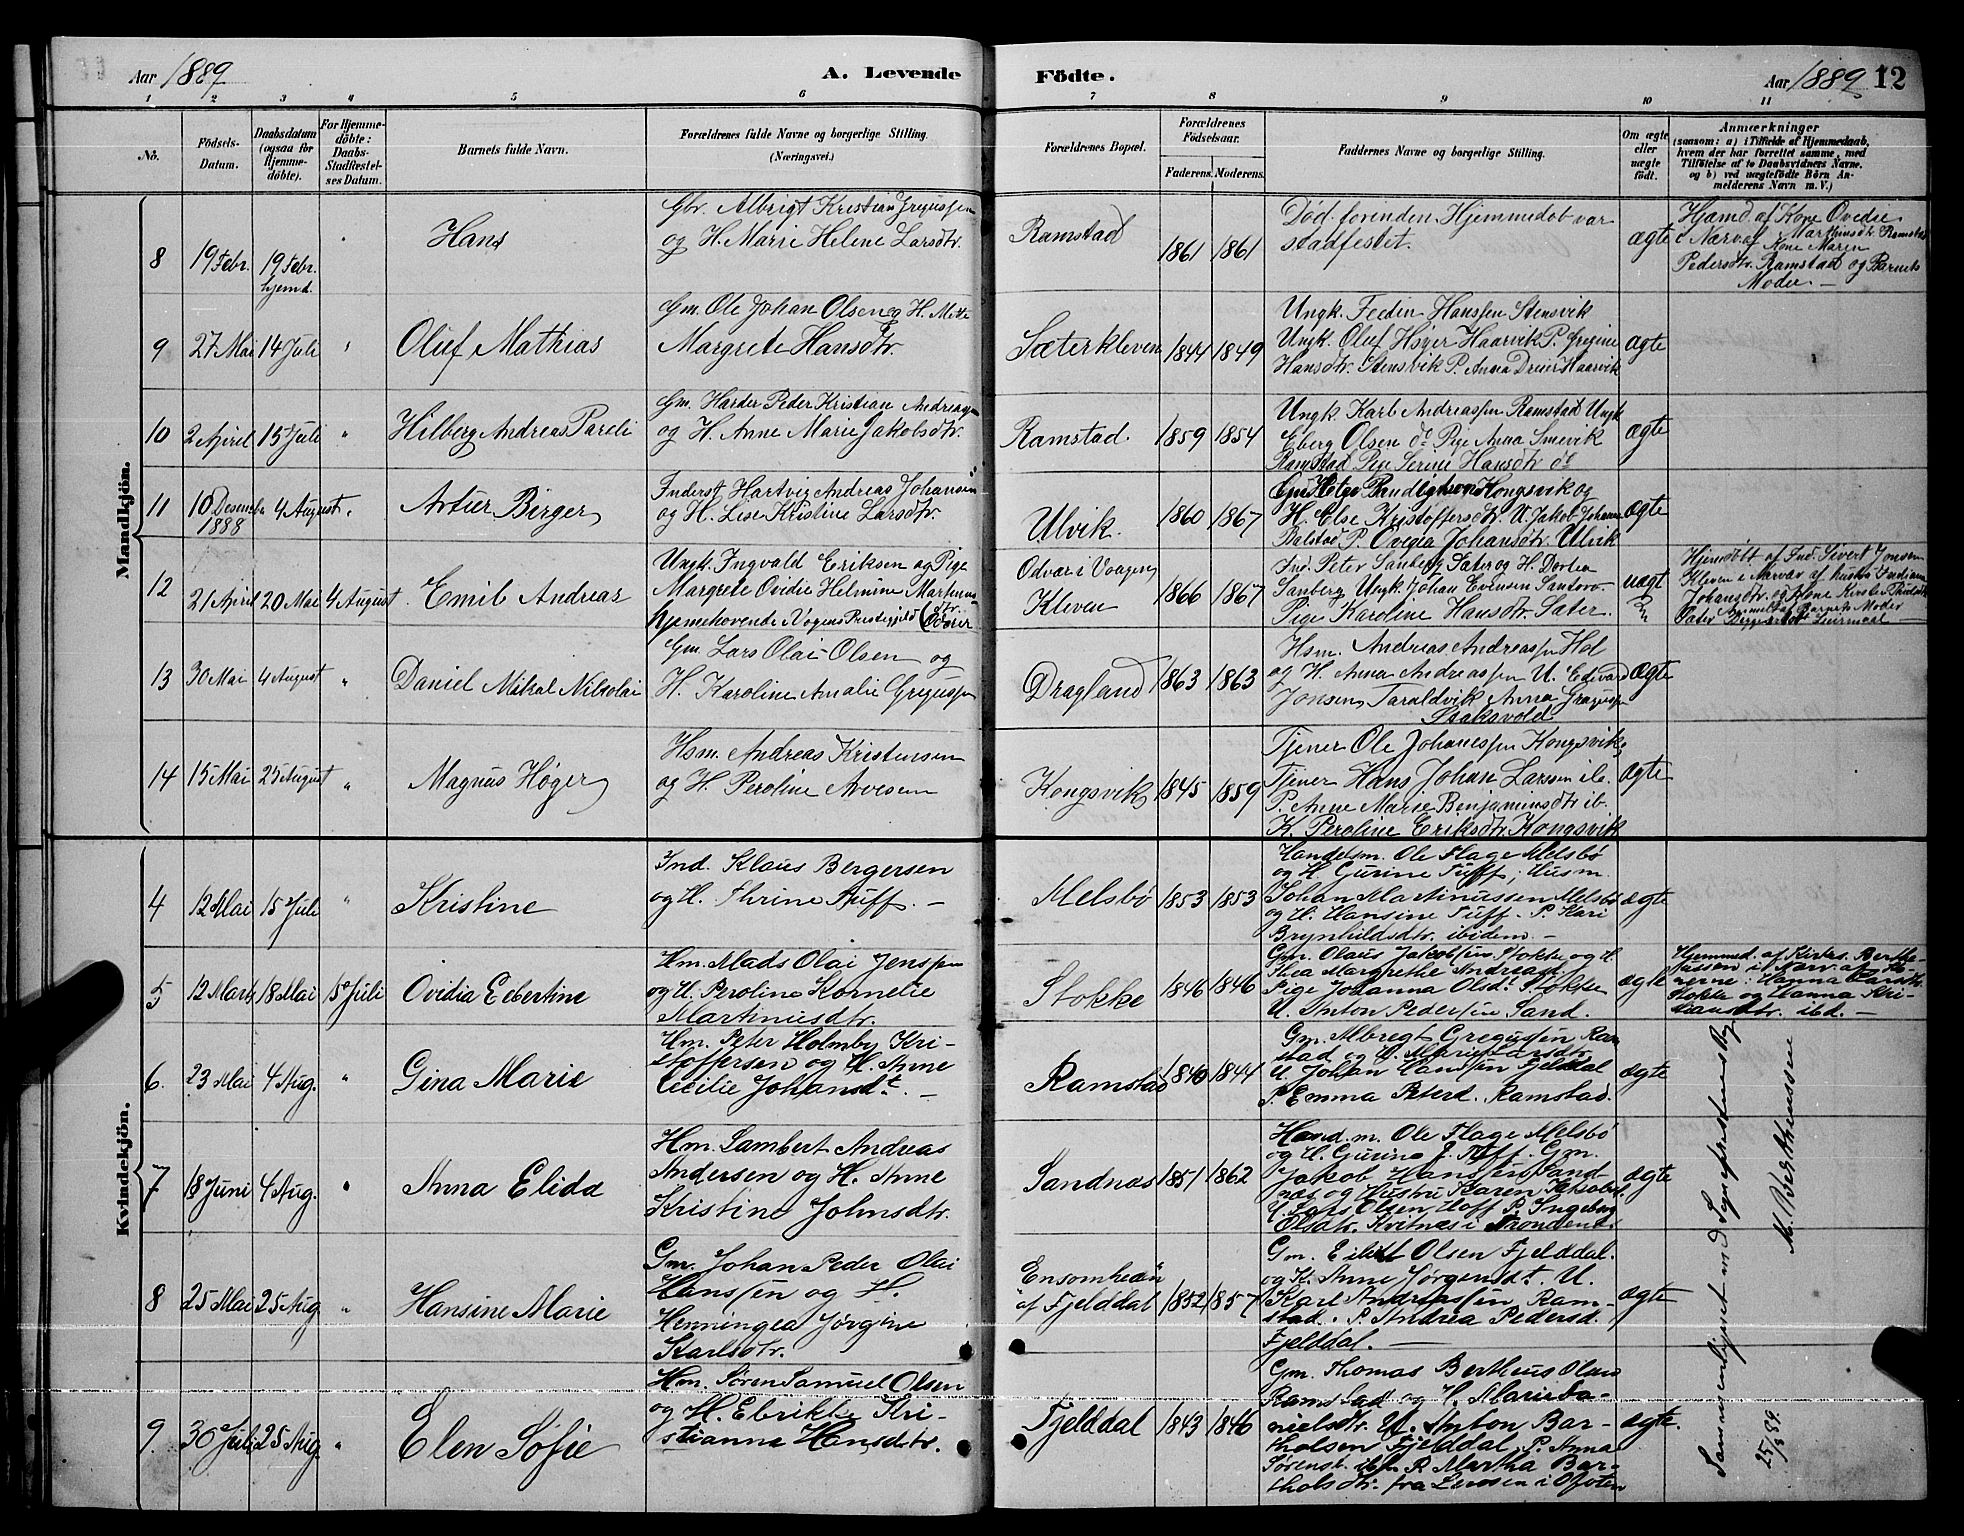 Aar 1889
A. Levende
Födte.
Aar 1889
12
1 2 3 4 5 6 7 8 9 10 11
No.
Födsels-Datum.
Daabsdatum (ogsaa for Hjemme-döbte).
For Hjemme-döbte: Daabs-Stadfæstel-ses Datum.
Barnets fulde Navn.
Forældrenes fulde Navne og borgerlige Stilling. (Næringsvei.)
Forældrenes Bopæl.
Forældrenes Födselsaar.
Faderens. Moderens.
Faddernes Navne og borgerlige Stilling.
Om ægte eller uægte födt.
Anmærkninger
(saasom: a) i Tilfælde af Hjemmedaab, hvem der har forrettet samme, med Tilföielse af to Daabsvidners Navne. og b) ved uægtefödte Börn An-melderens Navn m. V.)
Mandkjön.
8 19 Febr. 19 Febr. hjemd. " Hans
Gbr. Albrigt Kristian Gregussen
og H. Marie Helene Larsdtr.
Ramstad 1861 1861
Död forenden Hjemmedob var
stadfestet.
ægte
Hjemd. af Kone Ovedie
Marthinsdtr. Ramstad
i Nærv. af Kone Maren
Pedersdtr. Ramstad og Barnets
Moder. —
9 27 Mai 14 Juli " Oluf Mathias
Gm. Ole Johan Olsen og H. Mette
Margrete Hansdtr.
Sæterkleven 1844 1849
Ungk. Fedin Hanssen Stensvik
Ungk. Oluf Høyer Haarvik P. Gregine
Hansdtr. Stensvik P. Anna Dreier Haarvik
ægte
10 2 April 15 Juli " Hilberg Andreas Pareli
Gm. Harder Peder Kristian Andreassen
og H. Anne Marie Jakobsdtr.
Ramstad. 1859 1854
Ungk. Karl Andreassen Ramstad Ungk
Eberg Olsen do Pige Anna Smevik
Ramstad Pige Serine Hansdtr do
ægte
11 10 Desemb 1888 4 August " Artur Birger
Inderst Hartvig Andreas Johansen
og H. Lise Kristine Larsdtr.
Ulvik. 1860 1867
Kongsvik og
H. Else Kristoffersdtr. U. Jakob Johans
Balstad P. Ovedia Johansdtr. Ulvik
ægte
12 21 April 20 Mai 4 August. Emil Andreas
Ungk. Ingvald Eriksen og Pige
Margrete Ovidie Helmine Martinus-
dtr. Hjemehovende i Vogens Prestegjeld
Odvær i Vaagen
Kleven 1866 1867
Ind. Peter Sanberg Sæter og H. Dortea
Sanberg Ungk. Johan Evensen Santorv.
Pige Karoline Hansdtr. Sæter.
uægt
Hjemdöbt af Ind. Sivert Jonsen
Kleven i Nærvær af hustru
Johansdtr. og Kone
Anmeldt af Barnets Moder
13 30 Mai 4 August " Daniel Mikal Nikolai
Gm. Lars Olai Olsen og
H. Karoline Amalie Gregussen
Dragland 1863 1863
Hsm. Andreas Andreassen Hol
og H. Anna Andreassen U. Edvard
Jonsen Taraldvik Anna Gregussen
Staksvold
ægte
14 15 Mai 25 August " Magnus Höger
Hsm. Andreas Kristensen
og H. Peroline Arvesen
Kongsvik 1845 1859
Tjener Ole Johanessen Kongsvik
Tjener Hans Johan Larssen ib.
P. Anne Marie Benjaminsdtr. ib.
K. Peroline Eriksdtr. Kongsvik
ægte
Kvindekjön.
4 12 Mai 15 Juli " Kristine
Ind. Klaus Bergersen
og H. Thrine Tuff. —
Melsbö 1853 1853
Handelsm. Ole Flage Melsbö
og H. Gurine Tuff, Husm.
Johan Martinussen Melsbö
og H. Hansine Tuff. P. Kari
Brynhildsdtr. ibidem —
ægte
5 12 Marts 18 Mai 15 Juli Ovidia Ecbertine
Hm. Mads Olai Jenssen
og H. Peroline Kornelie
Martinusdtr.
Stokke 1846 1846
Gm. Olaus Jakobsen Stokke og H.
Thea Margrethe Andreasd.
Pige Johanna Olsdt. Stokke
U. Anton Pedersen Sand.
ægte
Hjemmed. af Kirkes. Berthe-
ussen i Nærv. af
: Hanna
Stokke og Hanna Kri-
stiansdtr. ibd. —
6. 23 Mai 4 Aug. " Gina Marie
Hm. Peter Holmby Kri-
stoffersen og H. Anne
Cecilie Johansdt. —
Ramstad 1840 1844
Gm. Albregt Gregussen Ram
stad og H. Marie Larsdtr.
U. Johan Hanssen Fjelddal
P. Emma Petersd. Ramstad.
ægte
7 18 Juni 4 Aug. " Anna Elida
Hm. Lambert Andreas
Andersen og H. Anne
Kristine Johnsdtr.
Sandnæs 1851 1862
Hand. m. Ole Flage Melsbö
og H. Gurine J. Tuff. Gm.
Jakob Hanssen Sand
næs og Hustru Karen Jakobsd.
U. Lars Olsen Hoff P. Ingeborg
Olsdtr. Kvitnæs i Trondenæs
ægte
8 25 Mai 25 Aug " Hansine Marie
Gm. Johan Peder Olai
Hanssen og H.
Henningea Jørgine
Karlsdtr.
Ensomheden
af Fjelddal 1852 1857
Gm. Olsen Fjelddal.
og H. Anne Jørgensdt. U.
Karl Andreassen Ram-
stad. P. Andrea Pedersd.
Fjelddal. —
ægte
9. 30 Juli 25 Aug. " Elen Sofie
Hm. Søren Samuel Olsen
og H. Ebrikke Kri-
stianna Hansdtr.
Fjelddal 1843 1846
Gm. Thomas Bertheus Olsen
Ramstad og H. Marie Da-
nielsdtr. U. Anton Bar-
tholsen Fjelddal, P. Anna
Sørensd. ibd. P. Martha Bar-
tholsdtr. fra i Ofoten
ægte.
Sammenlignet med
25/8 89.
M. Bertheussen